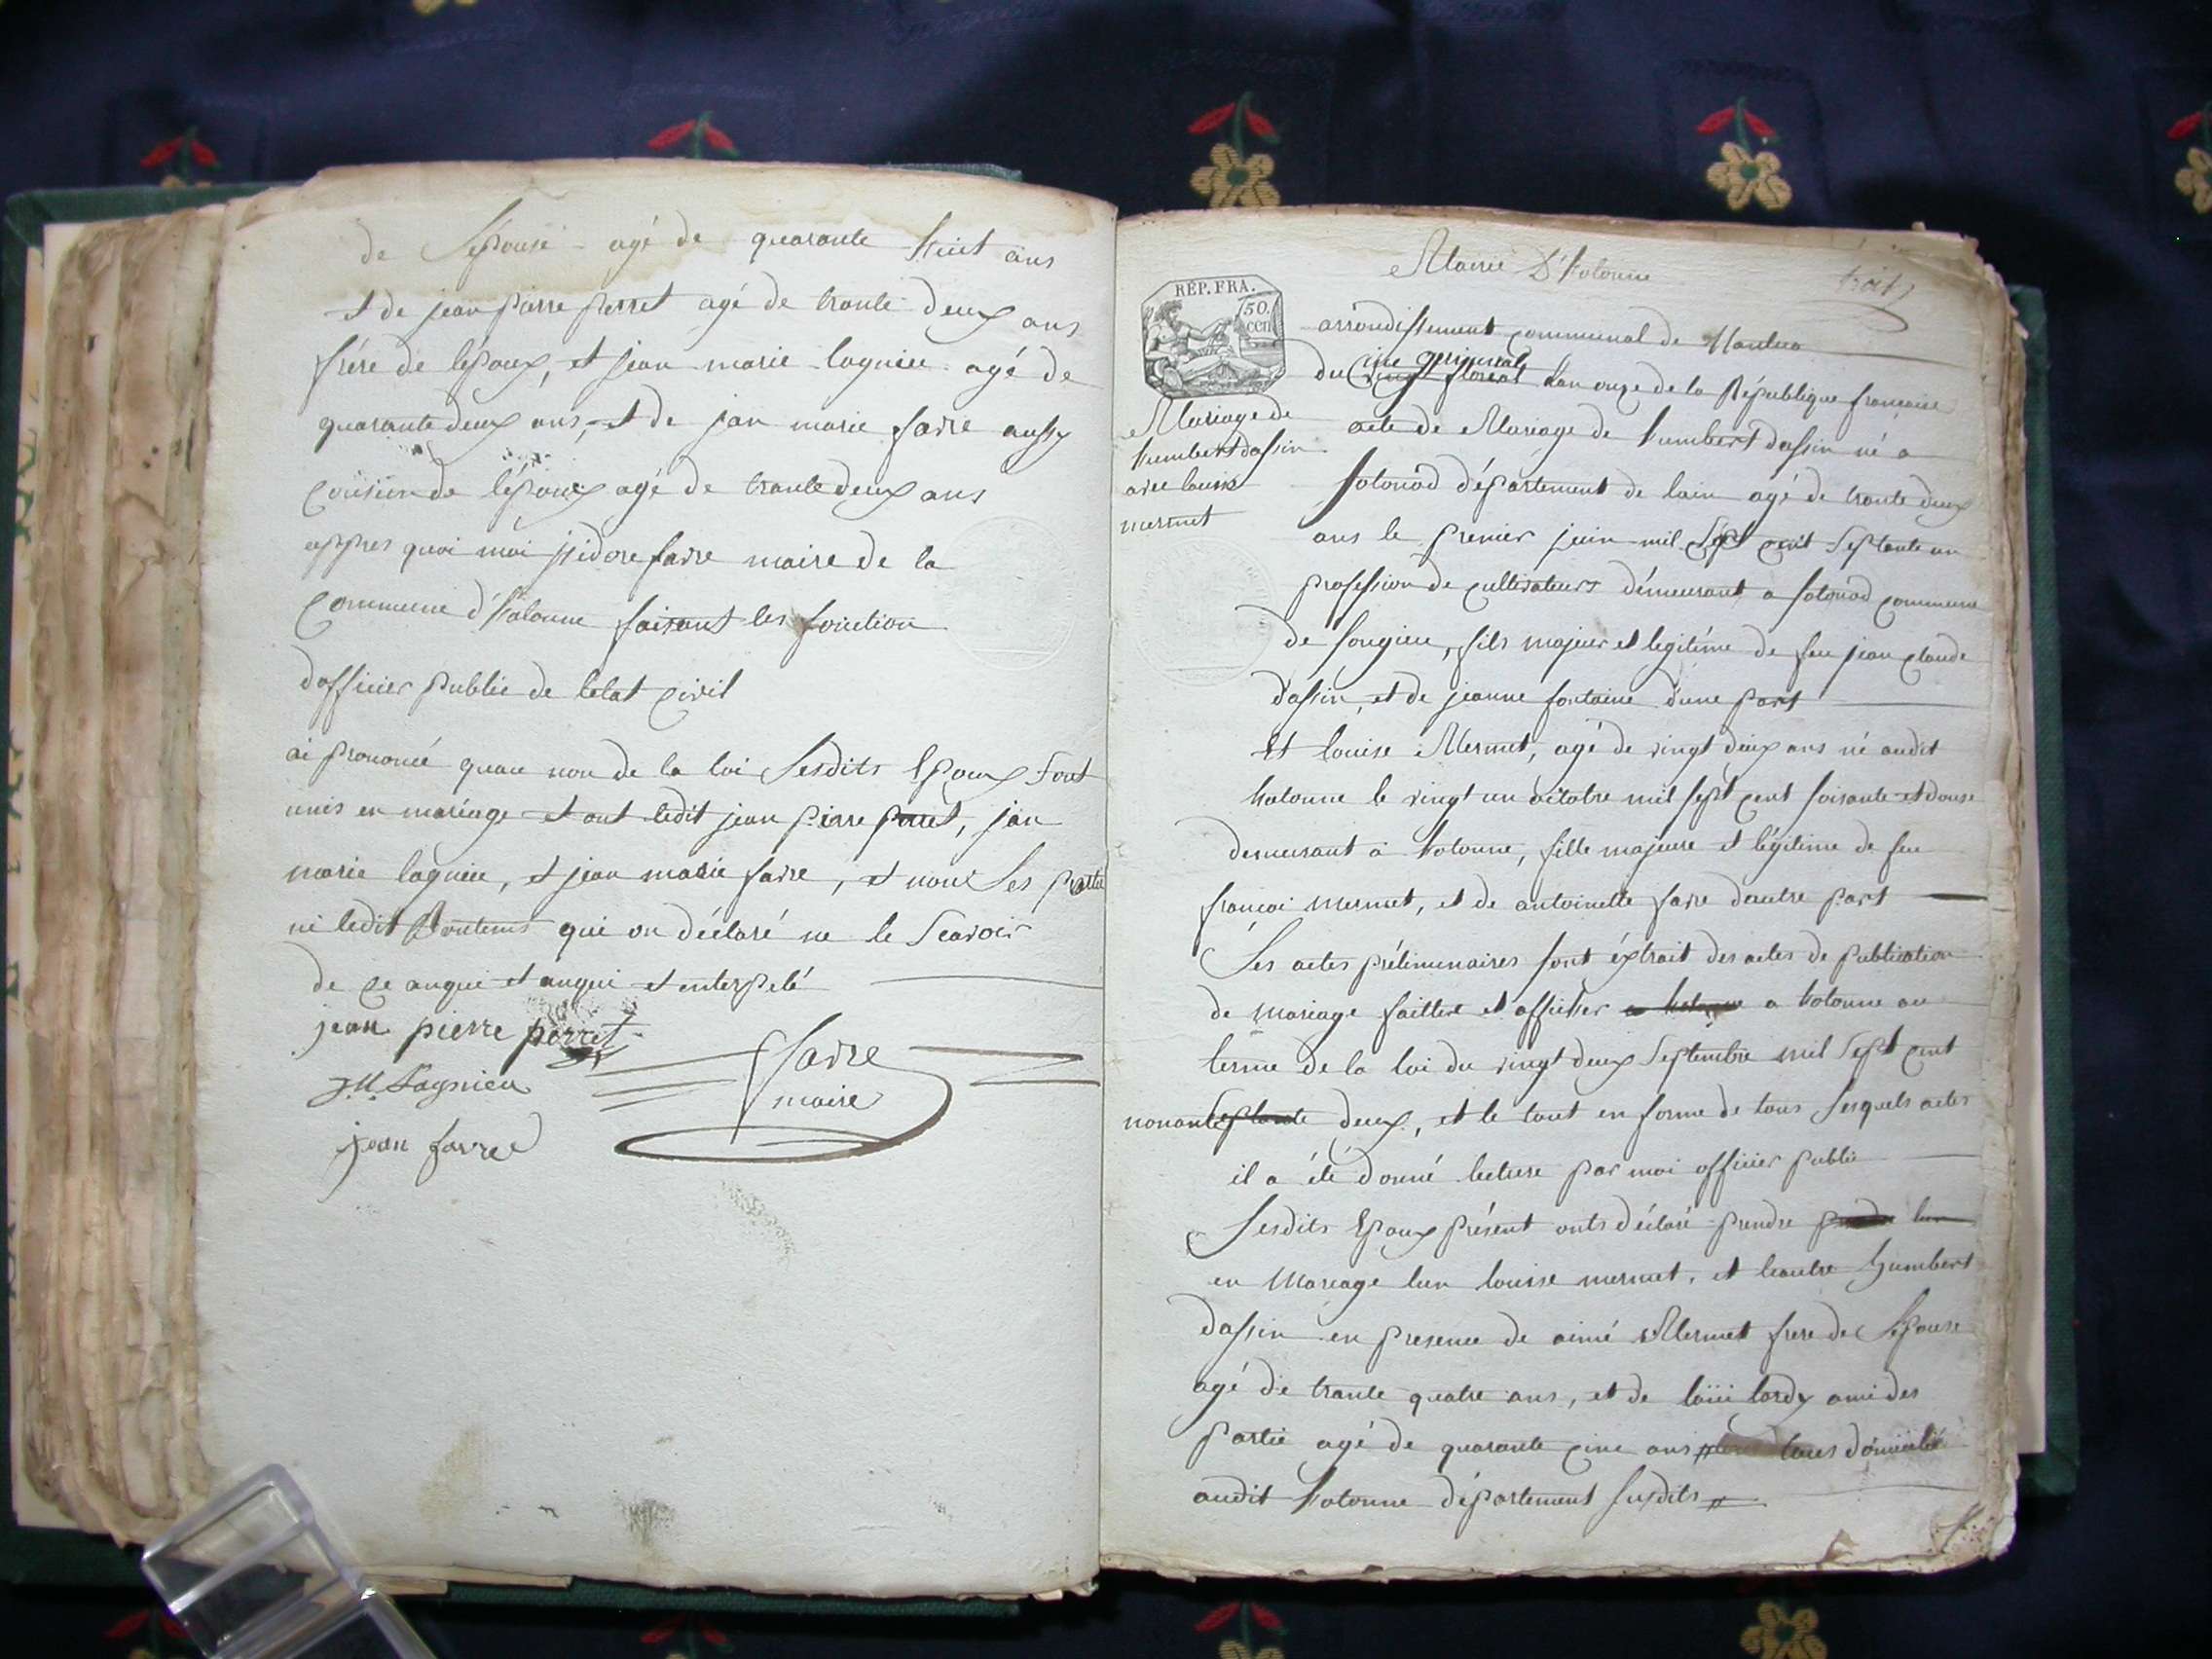 de Lepouse agé de quarante huit ans
et de jean pierre perret agé de trante deux ans
frére de lépoux, et jean marie lagnieu agé de
quarante deux ans, et de jan marie favre aussy
cousien de lépoux agé de trante deux ans
appres quoi moi isidore favre maire de la
commune d'hotonne faisant les fonction
dofficier public de letat civil
ai prononcé quau non de la loi Lesdits Epoux sont
unis en mariage et ont ledit jean pierre perret, jan
marie lagnieu, et jean marie favre, et nont Les partie
ni ledit qui on déclaré ne le Scavoir
de ce anquis et anquis et enterpelé
jean pierre perret
J.M. Lagnieu
jean favre
favre
maire
Mairie D'hotonne
trait
REP. FRA.
50.
cen.
arrondissement communal de Nantua
du cinc germinal vingt floreal Lan onze de la République francaise
Mariage de
humbert dassin
avec louise
mermet
acte de Mariage de humbert dassin né a
sotonod département de lain agé de trante deux
ans le premier juin mil Sept cent Septante un
profession de cultivateurs démeurant a sotonod commune
de songieu, fils majeur et legitime de feu jean claude
dassin, et de jeanne fontaine dune part
Et louise Mermet, agé de vingt deux ans né audit
hotonne le vingt un octobre mil sept cent soixante et douse
demeurant à hotonne, fille majeure et légitime de feu
francoi mermet, et de antoinette favre dautre part
Les actes préliminaires sont éxtrait des actes de publication
de mariage faittes et afficher a hotonne a hotonne au
terme de la loi du vingt deux Septembre mil Sept cent
nonante Septante deux, et le tout en forme de tous Lesquels actes
il a été donné lecture par moi officier public
Lesdits Epoux présent onts déclaré prendre
en Mariage lun louise mermet, et leautre humbert
dassin en presence de aimé Mermet frere de Lepouse
agé de trante quatre ans, et de loui lardy ami des
partie agé de quarante cinc ans tous domicilié
audit hotonne département Susdits